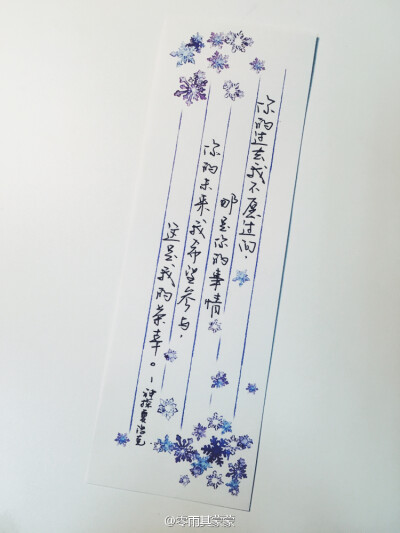 你的过去我不愿过问，
那是你的事情
你的未来我希望参与，
这是我的荣幸。
—神探夏洛克.
@零雨其蒙蒙